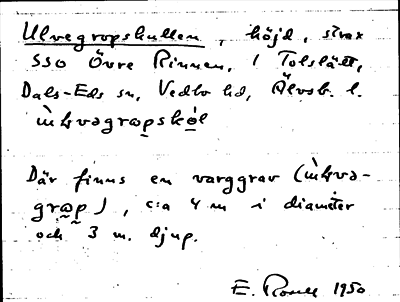 Ulvegropskullen, höjd, strax
SSO Övre Rinnen, i Tolslätt,
Dals-Eds sn, Vedbo hd, Älvsb. l.
Där finns en varggrav
), c:a 4 m i diameter
och 3 m. djup.
E. 1950